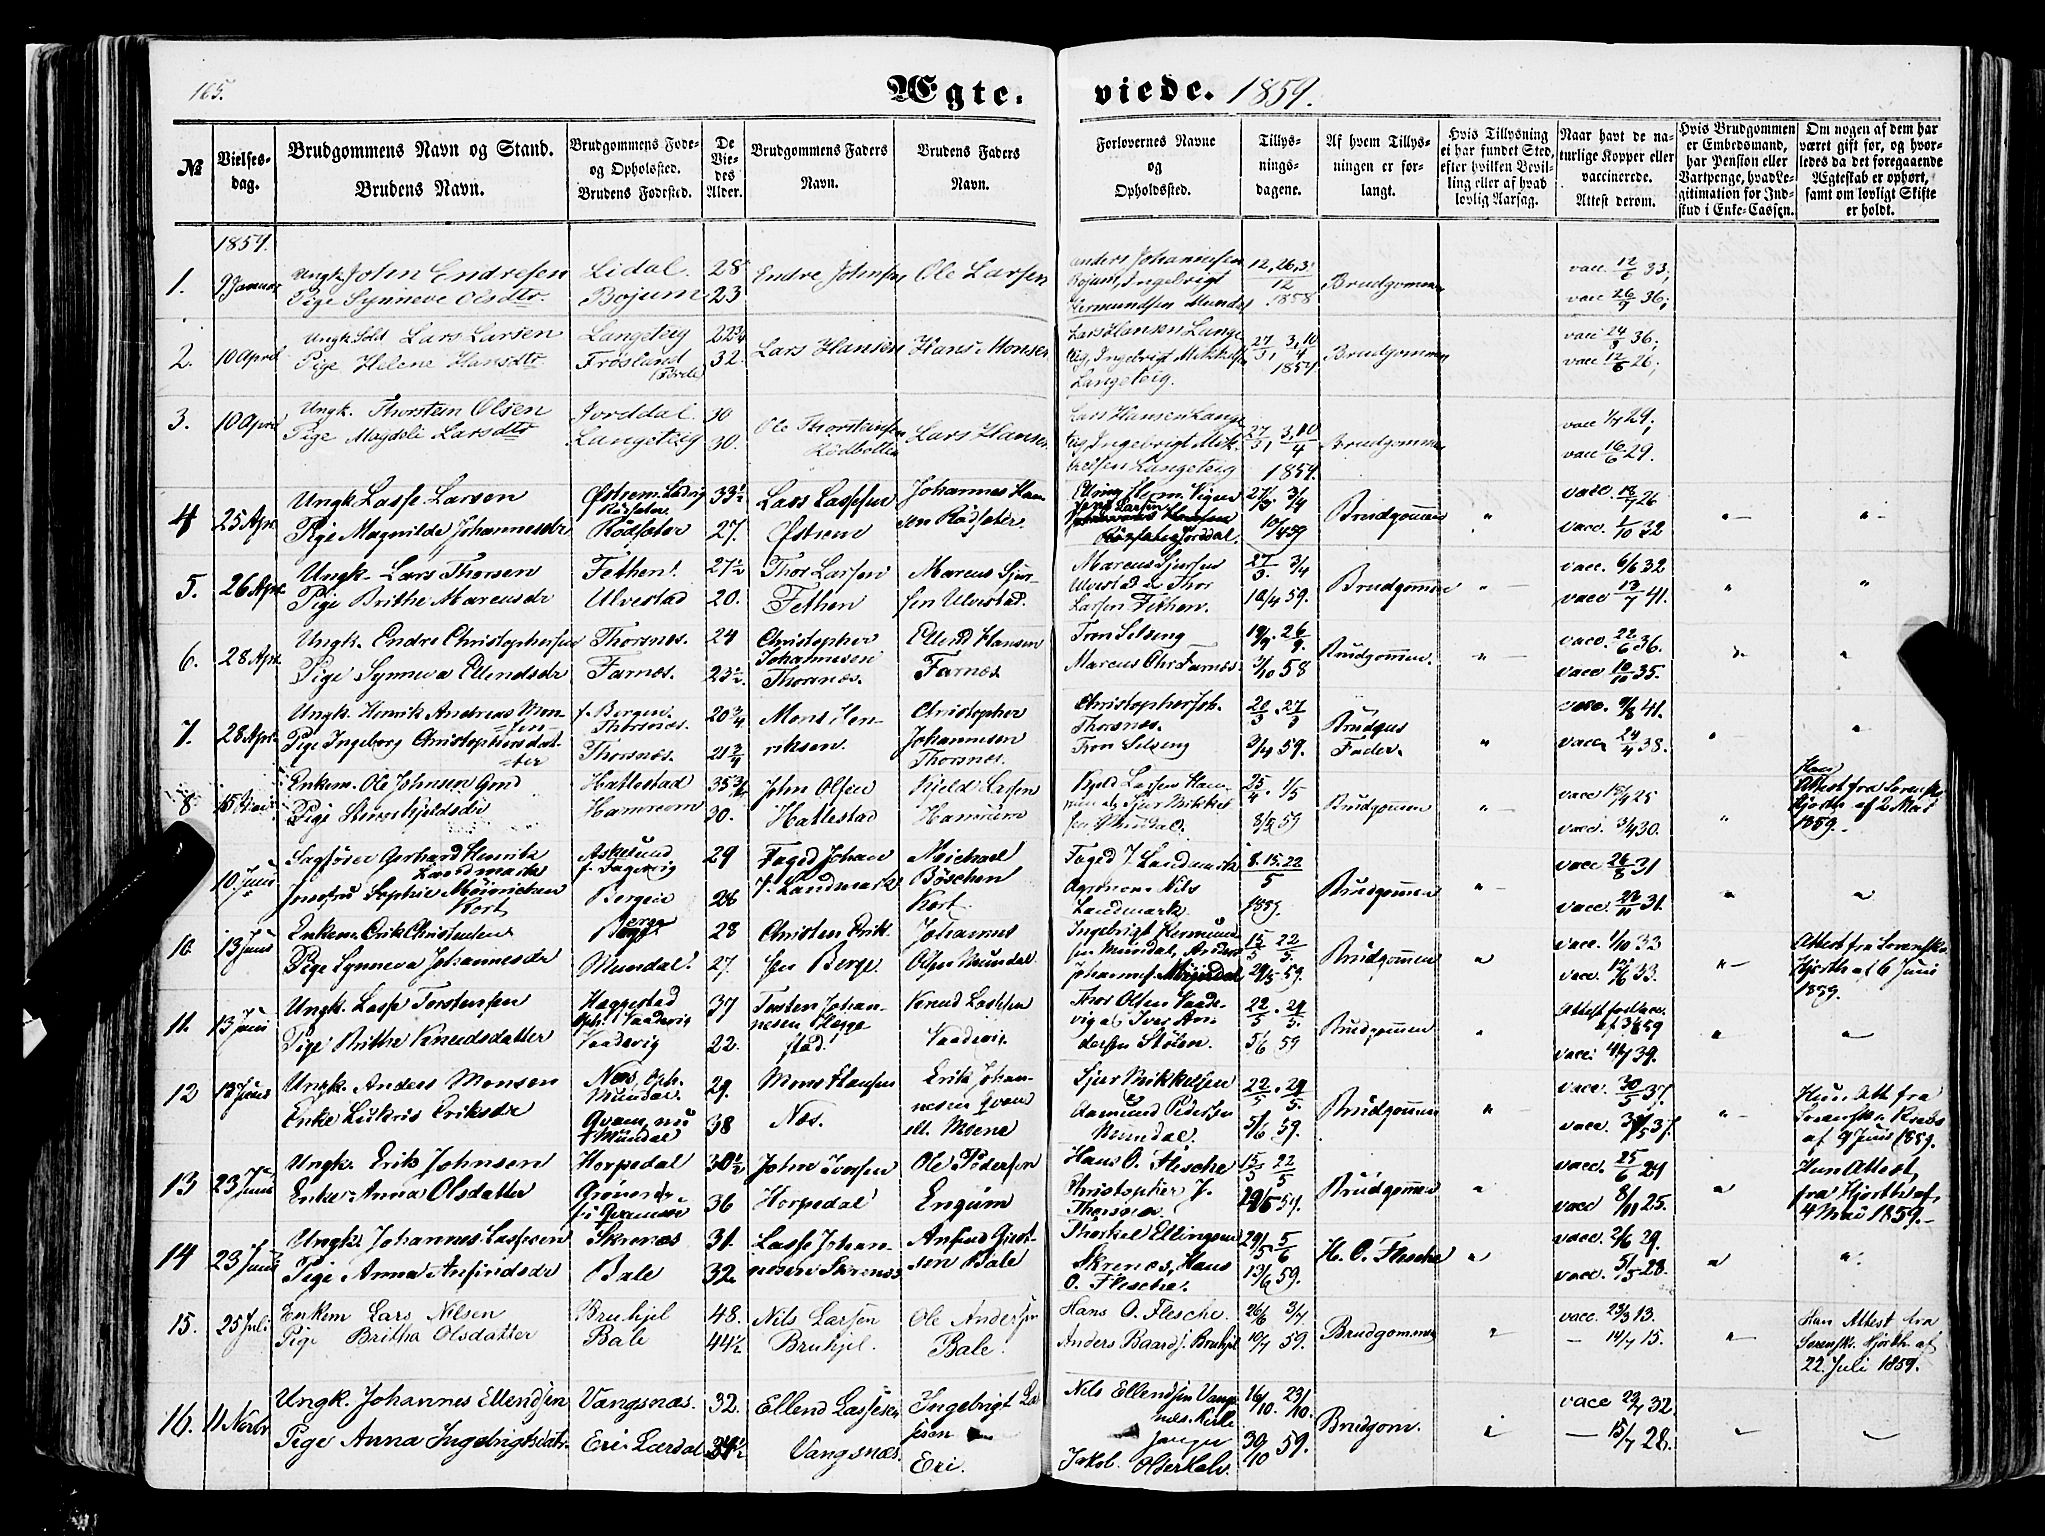 165.
Ægte- viede. 1859.
№
Vielses-
dag.
Brudgommens Navn og Stand.
Brudens Navn.
Brudgommens Føde-
og Opholdssted.
Brudens Fødested.
De
Vie-
des
Alder.
Brudgommens Faders
Navn.
Brudens Faders
Navn.
Forlovernes Navne
og
Opholdssted.
Tillys-
nings-
dagene.
Af hvem Tillys-
ningen er for-
langt.
Hvis Tillysning
ei har fundet Sted,
efter hvilken Bevil-
ling eller af hvad
lovlig Aarsag.
Naar havt de na-
turlige Kopper eller
vaccinerede.
Attest derom.
Hvis Brudgommen
er Embedsmand,
har Pension eller
Vartpenge, hvad Le-
gitimation for Ind-
skud i Enke-Cassen.
Om nogen af dem har
været gift før, og hvor-
ledes da det foregaaende
Ægteskab er ophørt,
samt om lovligt Skifte
er holdt.
1859.
1. 9 Januar
Ungk. John Endresen
Pige Synneve Olsdtr.
Lidal.
Bojum
28
23
Endre Johnsen
Ole Larsen
Anders Johannesen
Bojum, Ingebrigt
Germundsen Mundal
12, 26, 31
12
1858
Brudgommen
vacc. 12/6 33,
vacc 26/9 36,
2. 10 April
Ungk Sold Lars Larsen
Pige Helene Hansdtr
Langeteig
Frøsland
(Førde)
22 3/4
32.
Lars Hansen
Hans Monsen
Lars Hansen Lange
teig, Ingebrigt Mikkelsen
Langeteig.
27/3, 3,10/4
1859
Brudgommen
vacc 24/9 36,
vacc 12/6 26,
3. 10 April
Ungk. Thorstein Olsen
Pige Magdeli Larsdtr
Jorddal
Langeteig
30
30.
Ole Thorstensen
Rødbotten
Lars Hansen
Lars Hansen Lange
teig, Ingebrigt Mik-
kelsen Langeteig
27/3, 3,10/4
1859.
Brudgommen
vacc 1/7 29,
vacc 16/6 29.
4 25 Apr.
Ungk. Lasse Larsen
Pige Magnilda Johannesdr
Østrem
Rødseter
33 1/2
27.
Lars Lassesen
Østrem
Johannes Han-
sen Rødseter
Jens Larsen
27/3 3/4
10/4 59
Brudgommen
vacc. 18/7 26
vacc. 1/10 32
5. 26 Apr.
Ungk. Lars Thorsen
Pige Brithe Marcusdr
Fethen.
Ulvestad
27 1/2
20.
Thor Larsen
Fethen
Marcus Sjur-
sen Ulvestad.
Marcus Sjursen
Ulvestad & Thor
Larsen Fethen.
27/3. 3/4
10/4 59.
Brudgommen
vacc. 6/6 32
vacc 13/7 41.
6. 28 Apr.
Ungk. Endre Christophersen
Pige Synneva Ellendsdr
Thorsnes.
Farnes.
24
23 1/2.
Christopher
Johannesen
Thorsnes.
Ellend Hansen
Farnes
Tron Selseng
Marcus Chr Farnes
19/9. 26/9.
3/10 58
Brudgommen.
vacc. 22/6 36.
vacc 10/10 35.
7. 28 Apr.
Ungk. Henrik Andreas Mon-
sen
Pige Ingeborg Christophersdat-
ter
f. Bergen.
Thorsnes.
Thorsnes.
20 3/4
21 3/4
Mons Hen-
riksen.
Christopher
Johannesen
Thorsnes.
Christopher Joh.
Thorsnes.
Tron Selseng
20/3. 27/3
3/4 59.
Brudgus
Fader.
vacc. 9/8 41.
vacc. 24/4 38.
8
Enkem. Ole Johnsen Grnd
Pige Stina Kjeldsdr
Hattestad
Hamrum
35 3/4
30.
John Olsen
Hattestad
Kjeld Larsen
Hamrum
Kjeld Larsen Ham-
rum & Sjur Mikkel
sen Mundal.
25/4. 1/5
8/5 59
Brudgommen
vacc 15/9 25
vacc. 3/4 30.
Han
Attest fra Sorenskr.
Hjorth af 2 Mai
1859.
10 Juni
Sagfører Gerhard Henrik
Landmark
Jomfru Sophie
Kort
Askelund
f. Fagervig
Bergen
29
26
Foged Johan
J. Landmark
Michael
Bøschen
Kort.
Foged J. Landmark
Agronom Nils
Landmark.
8.15.22
5
1859.
Brudgommen
vacc 26/8 31
vacc. 20/11 31.
10. 13 Juni
Enkem. Erik Christensen
Pige Synneva Johannesdr
Berge
Mundal.
28
27.
Christen Erik-
sen Berge.
Johannes
Olsen Mundal
Ingebrigt Germund
sen Mundal, Anders
Johannes Mundal
15/5 22/5.
29/5 59.
Brudgommen
vacc. 1/10 33
vacc. 12/6 33.
Attest fra Sorenskr.
Hjorth af 6 Juni
1859.
11. 13 Juni
Ungk. Lasse Torstensen
Pige Brithe Knudsdatter
Heggestad
Oph. Vaadevig
Vaadevig
37
22.
Torsten Johan-
nesen Hegge
stad.
Knud Lassesen
Vaadevig.
Thor Olsen Vaade-
vig & Iver An-
dersen Stølen.
22/5. 29/5.
5/6 59
Brudgommen
vacc. 4/7 39.
12 13 Juni
Ungk. Anders Monsen
Enke Lukris Eriksdr
Næs, Oph.
Mundal.
Qvam, nu
Mundal
29.
38
Mons Hansen
Næs.
Erik Johan-
nesen Qvam
ell. Moene
Sjur Mikkelsen
Aamund Pedersen
Mundal.
22/5. 29/5.
5/6 59.
Brudgommen
vacc. 30/5 37.
Hun. Att. fra
Sorenskr. Krebs
af 9 Juni 1859.
13 23 Juni
Ungk. Erik Johnsen
Enke: Anna Olsdatter
Horpedal
30 1/2
36
John Iversen
Horpedal
Ole Pedersen
Engum
Hans O. Flesche
Christopher J.
Thorsnes
15/5 22/5
29/5 59.
Brudgommen
vacc. 25/6 29
vacc 8/11 25.
Hun Attest
fra Hjorth af
4 Mai 1859.
14 23 Juni
Ungk. Johannes Lassesen
Pige Anna Anfindsdr
Skrenæs
Bale
31.
32.
Lasse Johan-
nesen Skrenæs
sen Bale
Thorkel Ellingsen
Skrenes, Hans
O. Flesche.
29/5. 5/6
13/6 59.
H. O. Flesche
vacc. 2/6 29.
vacc. 5/5 28.
15. 25 Juli
Enkem Lars Nilsen
Pige Britha Olsdatter
Bruhjel
Bale
48.
44 1/2
Nils Larsen
Bruhjel.
Ole Andersen
Bale.
Hans O. Flesche
Anders Baards. Bruhjel
26/6 3/7
10/7 59.
Brudgommen
vacc. 23/3 13.
— 14/7 15.
Han Attest fra
Sorenskr. Hjorth af
22. Juli 1859.
16. 11 Novbr
Ungk. Johannes Ellendsen
Pige Anna Ingebrigtsdatr.
Vangsnæs.
Eri. Lærdal
32.
34 1/2
Ellend Lassesen
Vangsnæs.
Ingebrigt La-
sen
Eri.
Nils Ellendsen Vangs
næs.
Jakob
16/10. 23/10.
30/10 59.
Brudgom.
vacc 22/7 32.
— 15/7 28.